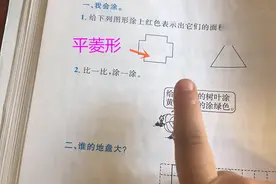 一、我会涂。
1. 给下列图形涂上红色表示出它们的面
平菱形
2. 比一比,涂一涂。
给 的树叶涂
黄 的涂绿色。
二、谁的地盘大?